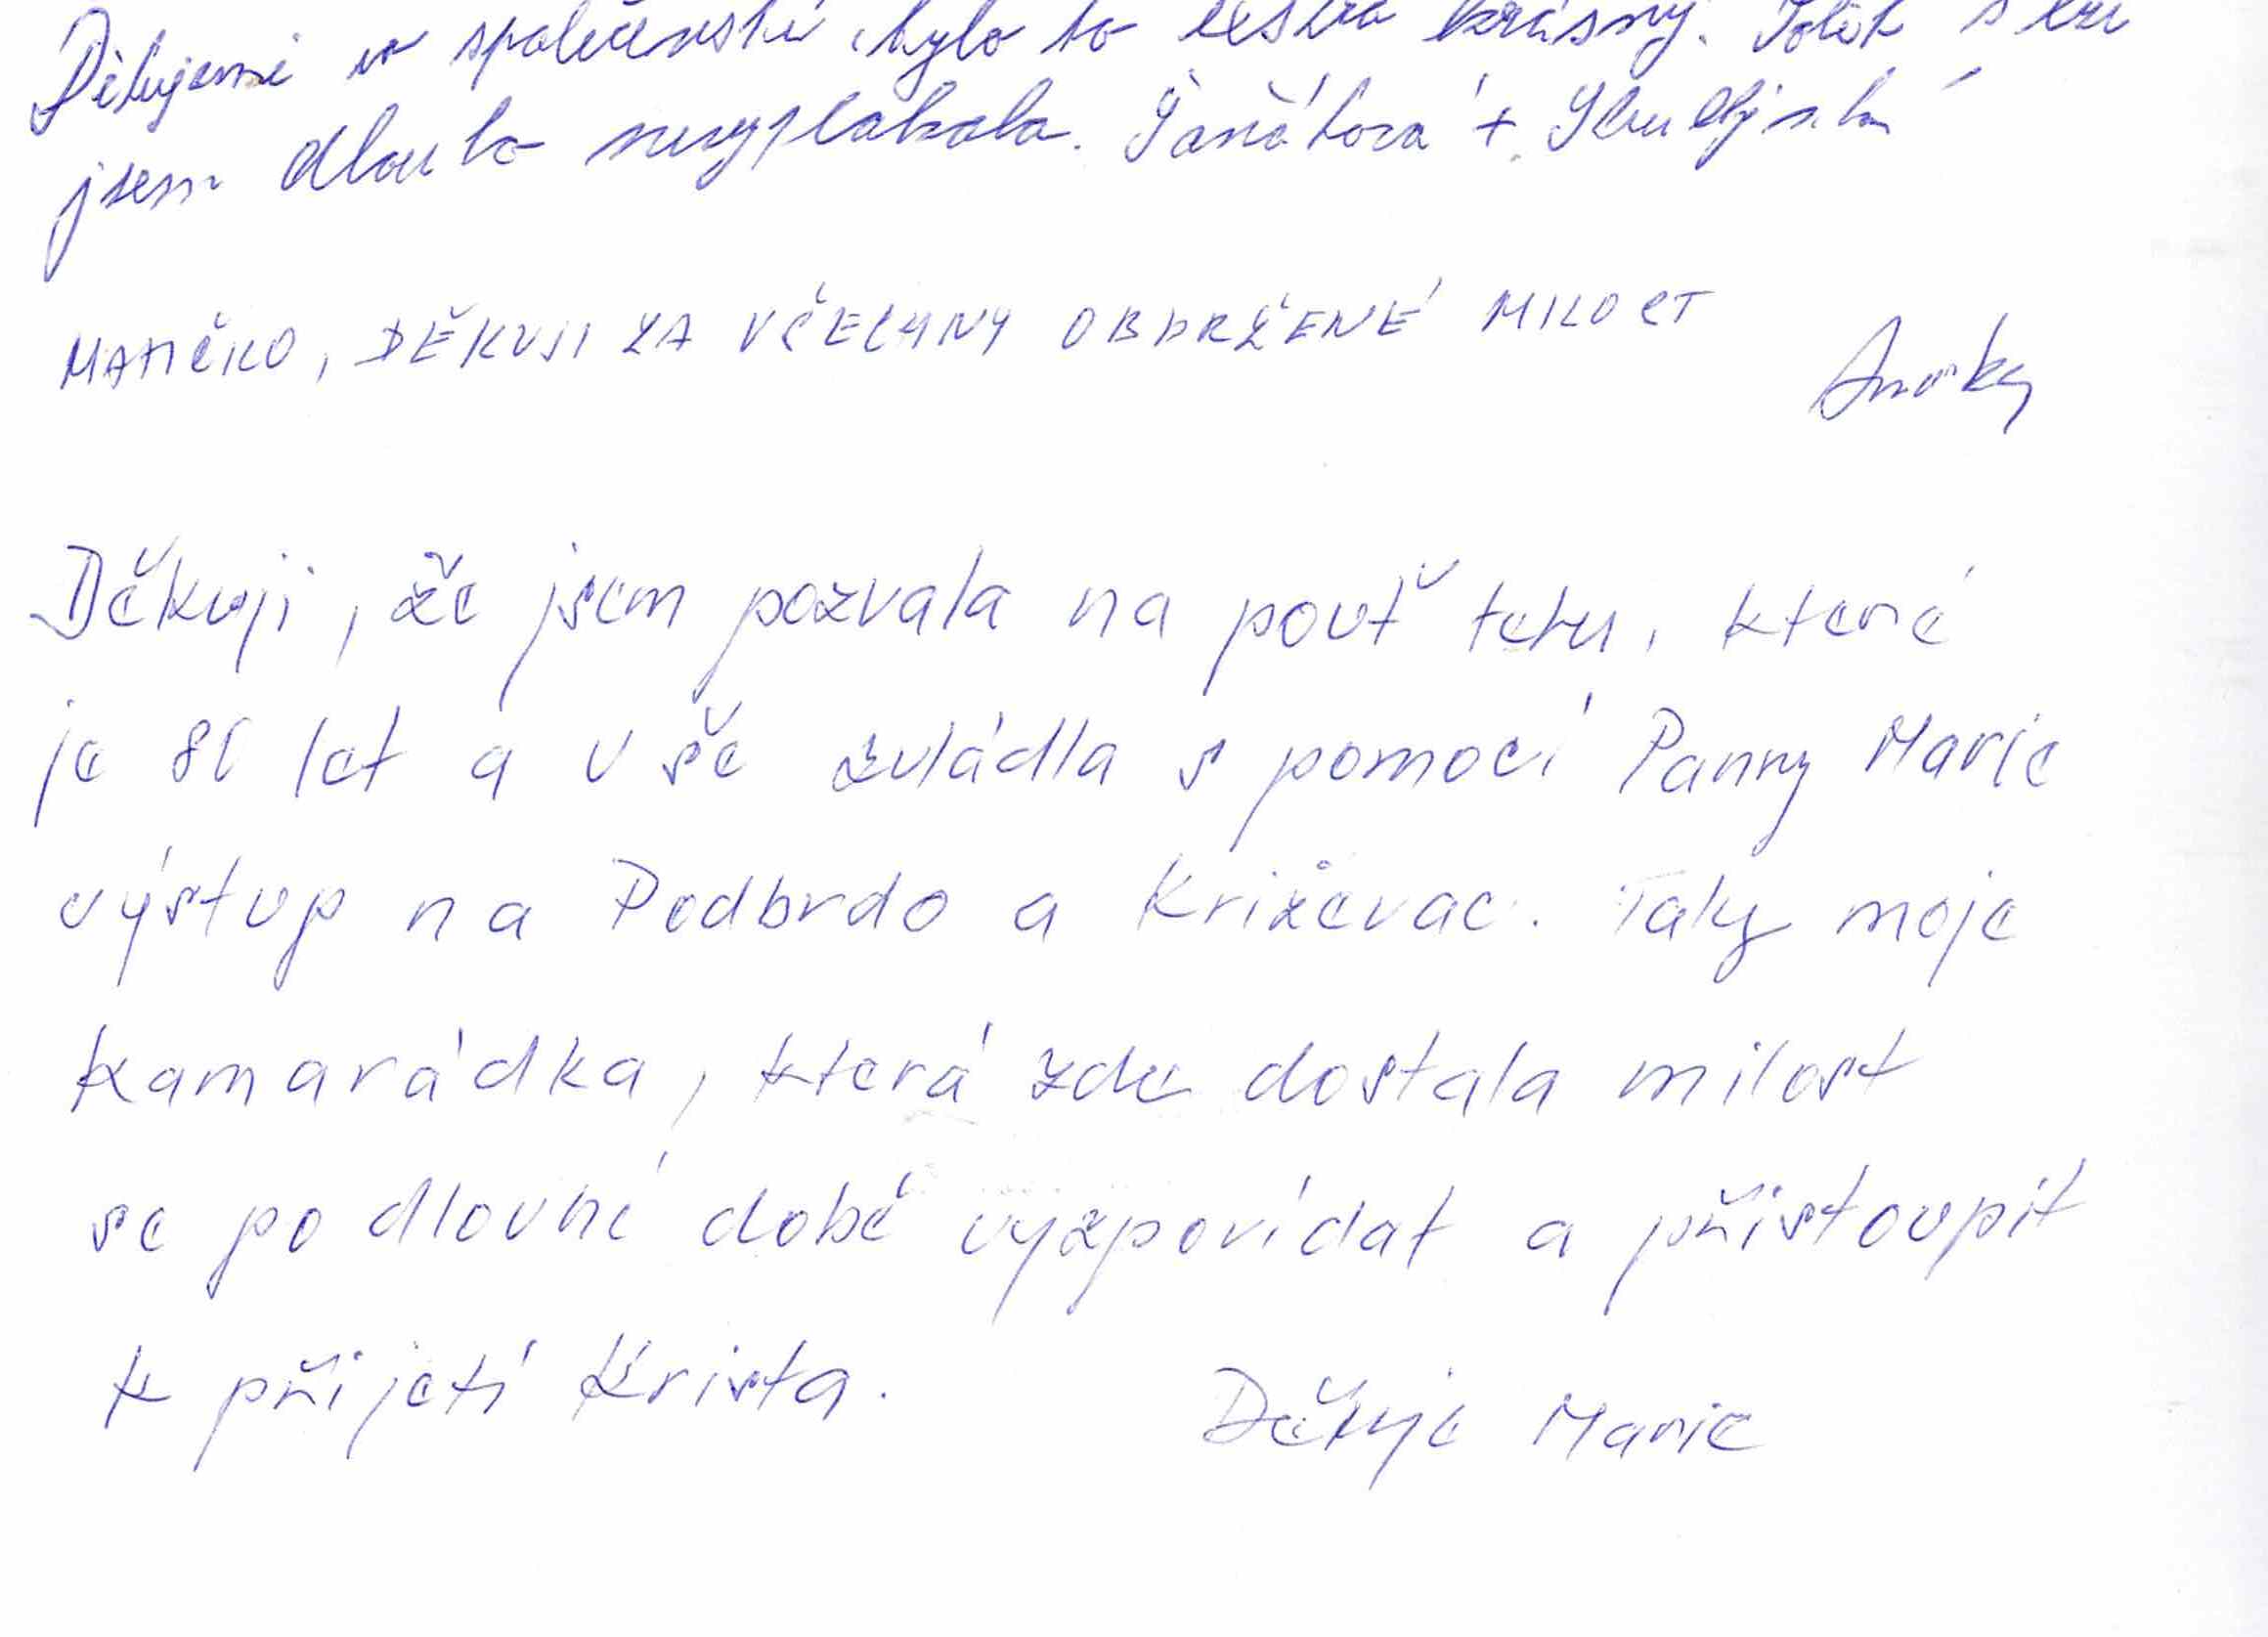 Děkujeme za společenství, bylo to dost krásný. Tolik slz
jsem dlouho nevyplakala.
MATIČKO, DĚKUJI ZA VŠECHNY OBDRŽENÉ MILOST
Děkuji, že jsem pozvala na pouť tetu, které
je 81 let a vše zvládla s pomocí Panny Marie
výstup na Podbrdo a Križevac. Taky moje
kamarádka, která zde dostala milost
se po dlouhé době vyzpovídat a přistoupit
k přijetí Krista.
Děkuje Marie